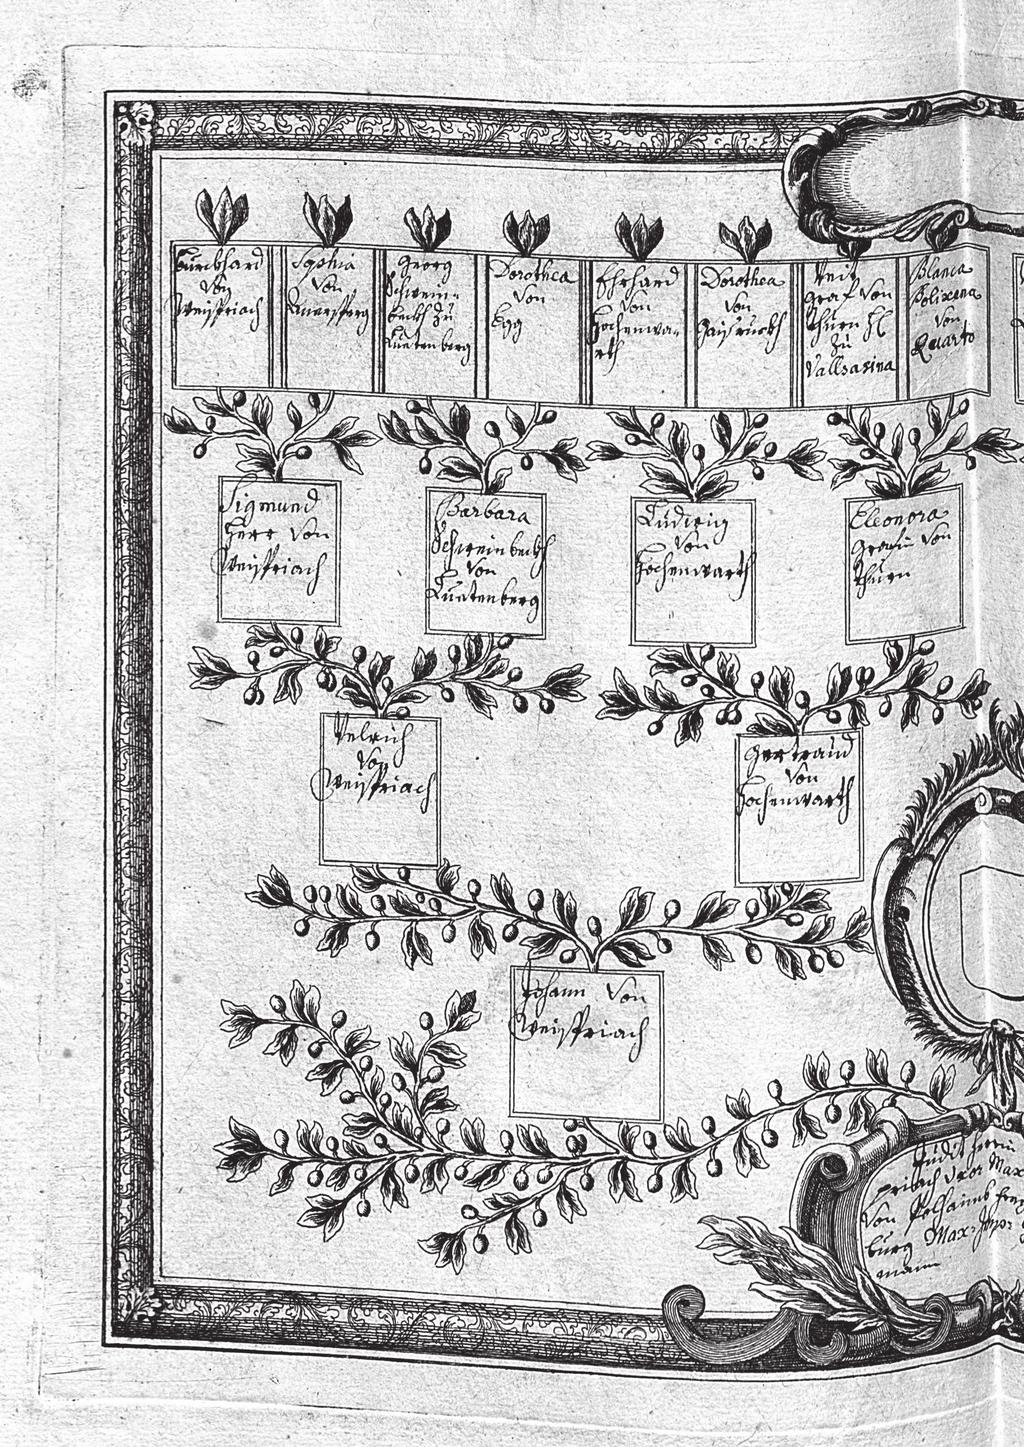 Burckhard
von
Weispriach
Sophia
von
Auersperg
Georg
Schwein-
beckh zu
Luetenberg
Dorothea
von
Egg
Ehrhard
von
Hochenwa-
rth
Dorothea
von
Gaysruckh
Veit
Graf von
Thurn
zu
Vallsasina
Blanca
Polixena
von
Quarto
Sigmund
Herr von
Weispriach
Barbara
Schweinbeckh
von
Luetenberg
Ludwig
von
Hochenwarth
Eleonora
Gräfin von
Thurn
Velrich
von
Weispriach
Gertraud
von
Hochenwarth
Johann von
Weispriach
Judit
priach Max
von
burg Max:
mann